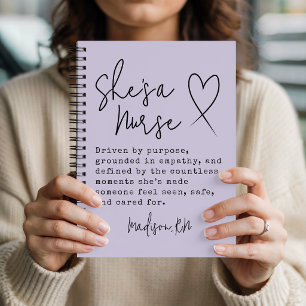 She's a
Nurse
Driven by purpose,
grounded in empathy, and
defined by the countless
moments she's made
someone feel seen, safe,
and cared for.
Madison, RN